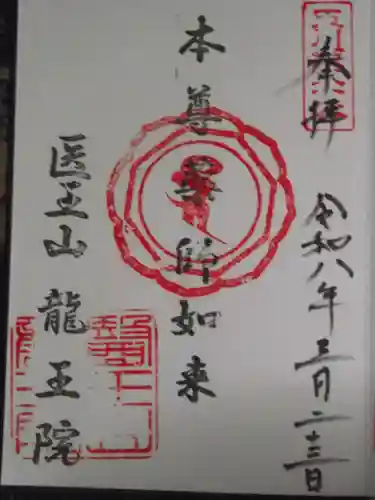 奉拝
令和八年三月二十三日
本尊薬師如来
医王山龍王院